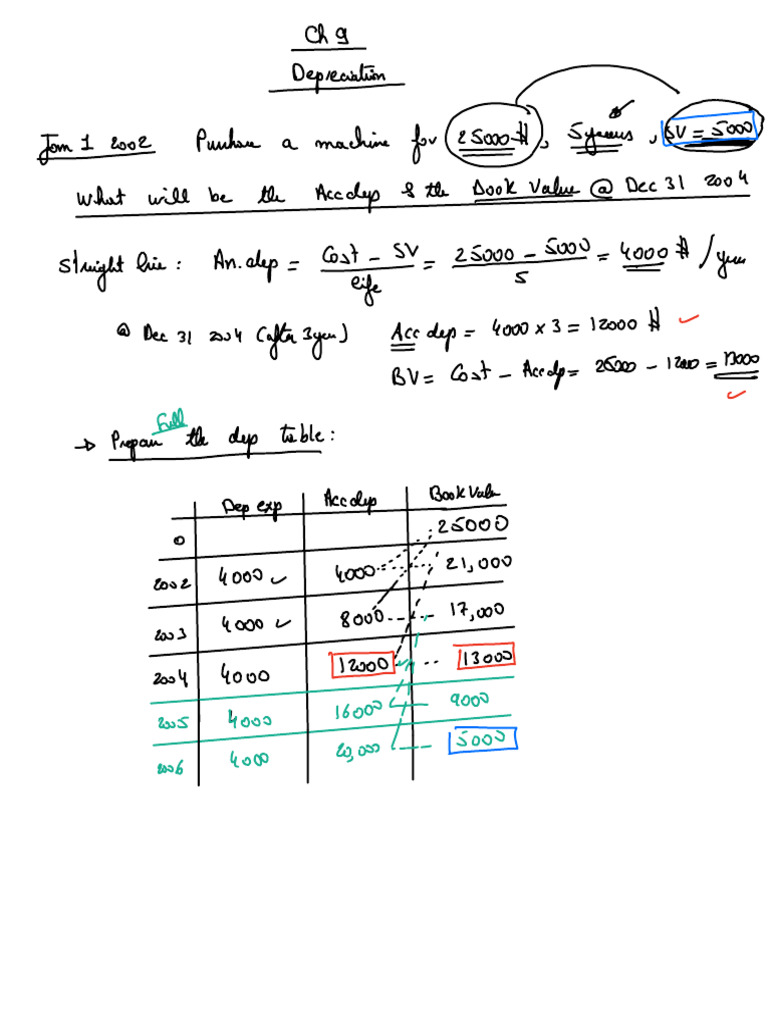 Ch 9
Depreciation
Jan 1 2002 Purchase a machine for 25000 $, 5 years, SV = 5000
What will be the Acc dep & the Book Value @ Dec 31 2004
Straight line: An. dep = Cost - SV / life = 25000 - 5000 / 5 = 4000 $ / year
@ Dec 31 2004 (after 3 year) Acc dep = 4000 x 3 = 12000 $ ✓
BV = Cost - Acc dep = 25000 - 12000 = 13000 ✓
Full
→ Prepare the dep table:
Dep exp Acc dep Book Value
0 25000
2002 4000 ✓ 4000 21,000
2003 4000 ✓ 8000 17,000
2004 4000 12000 13000
2005 4000 16000 9000
2006 4000 20,000 5000